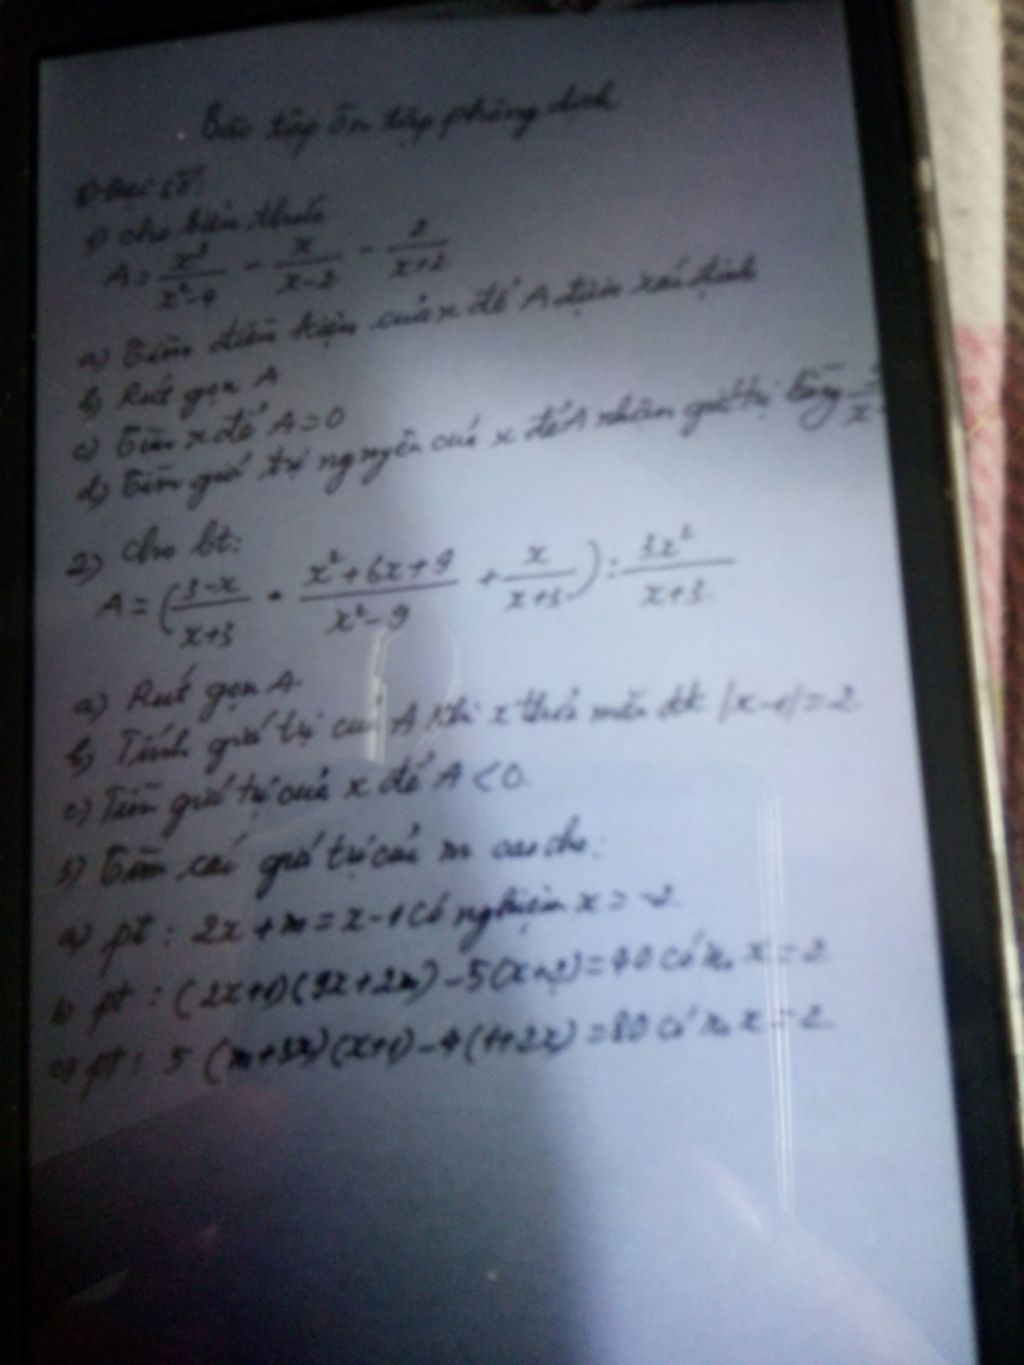 Bài tập ôn tập phòng dịch
I) Đại số:
1) Cho biểu thức
A = x³/(x²-4) - x/(x-2) - 2/(x+2)
a) Tìm điều kiện của x để A được xác định
b) Rút gọn A
c) Tìm x để A = 0
d) Tìm giá trị nguyên của x để A nhận giá trị
2) Cho bt:
A = ((3-x)/(x+3) · (x²+6x+9)/(x²-9) + x/(x+3)) : 3x²/(x+3)
a) Rút gọn A
b) Tính giá trị của A khi x thỏa mãn đk |x-1| = 2
c) Tìm giá trị của x để A < 0
3) Tìm các giá trị của m sao cho:
a) pt : 2x + m = x - 1 có nghiệm x = -2
b) pt : (2x+1)(9x+2m) - 5(x+2) = 40 có no x = 2
c) pt : 5(m+3x)(x+1) - 4(1+2x) = 80 có no x = 2